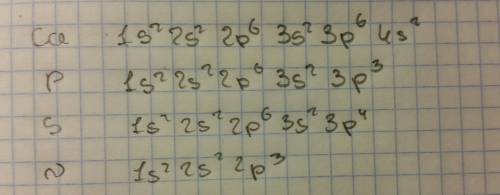 Ca 1s² 2s² 2p⁶ 3s² 3p⁶ 4s²
P 1s² 2s² 2p⁶ 3s² 3p³
S 1s² 2s² 2p⁶ 3s² 3p⁴
N 1s² 2s² 2p³